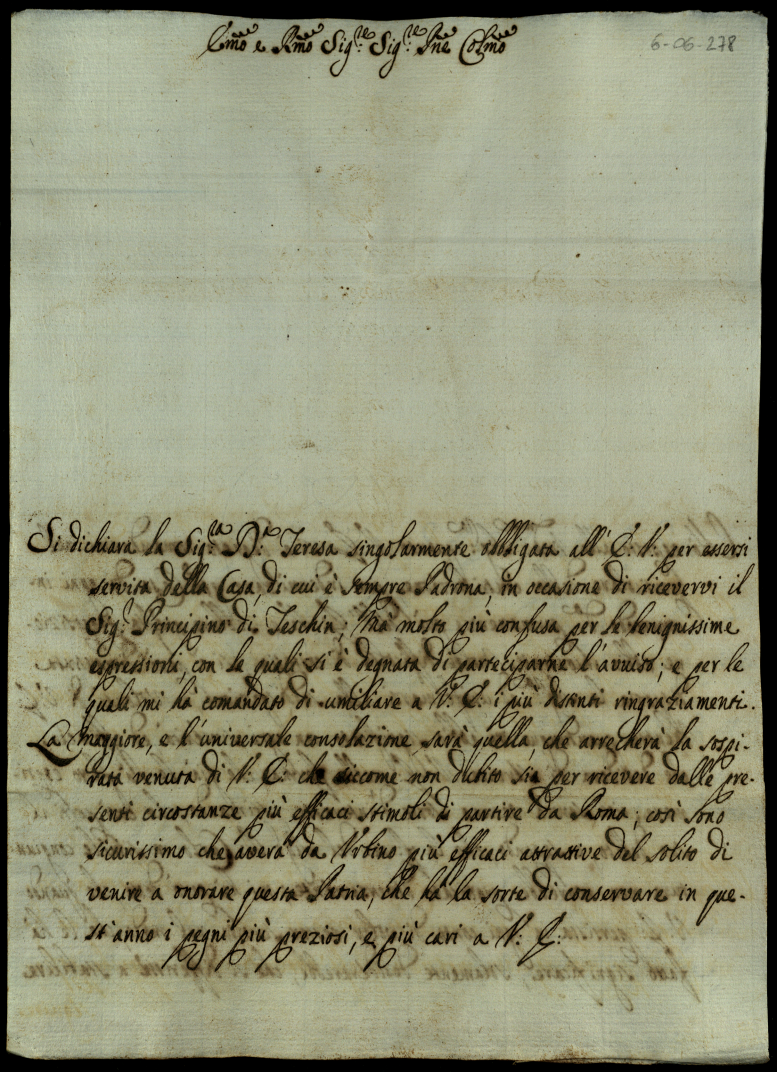 Emo͠ e Rmo͠ Sig:re Sig:re Pne͠ Colmo͠
6-06-278
Si dichiara la Sig:ra D:a Teresa singolarmente obbligata all' E: V: per essersi
servita della Casa, di cui è sempre Padrona, in occasione di ricevervi il
Sig:r Principino di Teschin; Mà molto più confusa per le benignissime
espressioni, con le quali si è degnata di parteciparne l'avviso; e per le
quali mi hà comandato di umiliare a V: E: i più distinti ringraziamenti.
La maggiore, e l'universale consolazione sarà quella, che arrecherà la sospi-
rata venuta di V: E: che siccome non dubito sia per ricevere dalle pre-
senti circostanze più efficaci stimoli di partire da Roma; così sono
sicurissimo che averà da Urbino più efficaci attrattive del solito di
venire a onorare questa Patria, che hà la sorte di conservare in que-
st'anno i pegni più preziosi, e più cari a V: E: